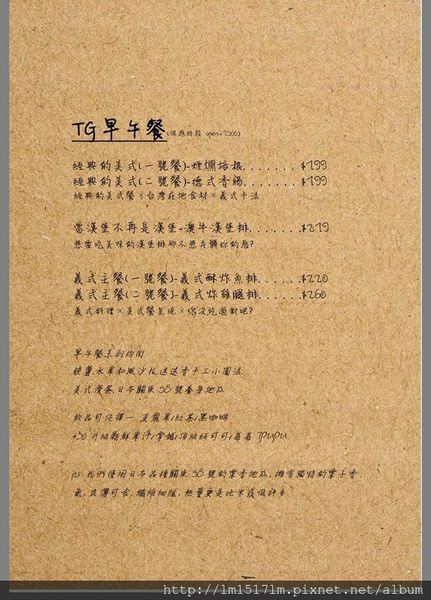 TG早午餐(供應時段 open~1500)
經典的美式(一號餐)-煙燻培根.......$199
經典的美式(二號餐)-德式香腸.......$199
經典的美式餐x台灣在地食材x義式手法
當漢堡不再是漢堡-澳牛漢堡排.......$219
想要吃美味的漢堡排卻不想弄髒你的手?
義式主餐(一號餐)-義式酥炸魚排......$220
義式主餐(二號餐)-義式炸雞腿排......$260
義式料理x美式餐呈現x你沒吃過對吧?
早午餐系列均附
時蔬水果和風沙拉 手工小園法
美式滑蛋 日本關東58號養身地瓜
飲品可任擇一 美蔓果/紅茶/黑咖啡
+50升級新鮮果汁/拿鐵/頂級純可可/
ps.我們使用日本品種關東58號的栗香地瓜,擁有獨特的栗子香
氣,皮薄可食,纖維細緻,熱量更是比米飯低許多
http://lm1517lm.pixnet.net/album